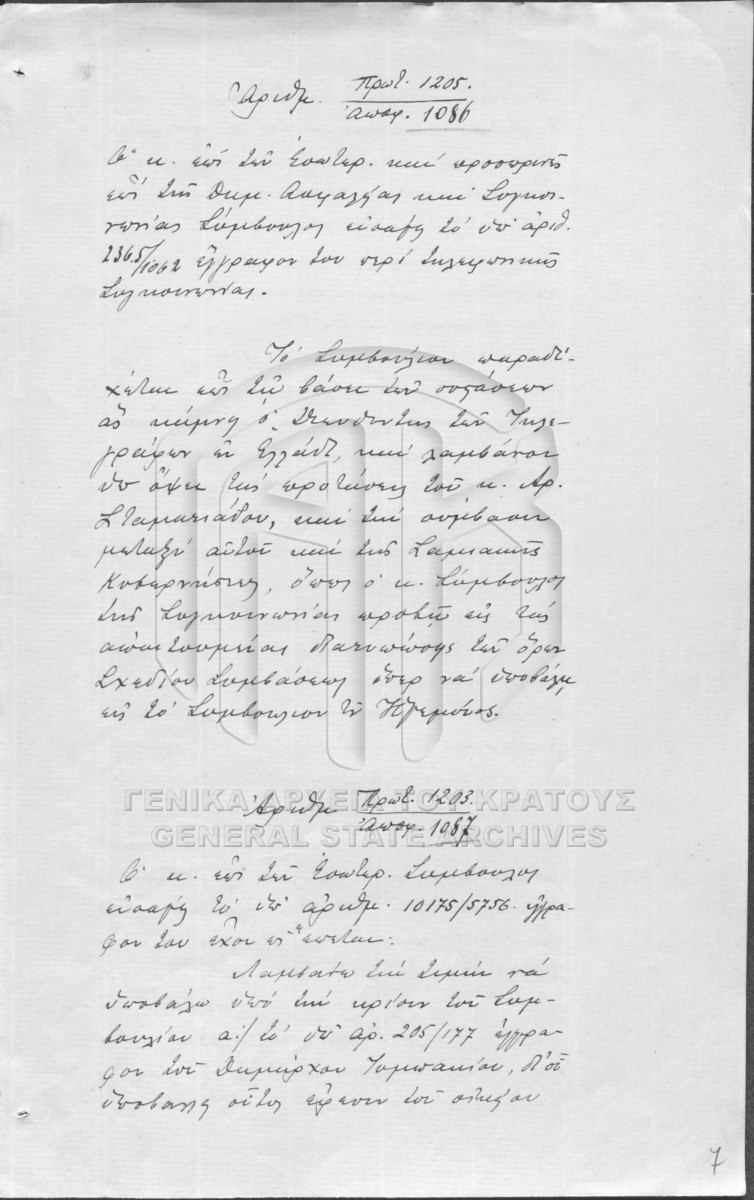 Ἀριθμ. Πρωτ. 1205.
Ἀποφ. 1086
Ὁ κ. ἐπὶ τῶν Ἐσωτερ. καὶ προσωρινῶς
ἐπὶ τῆς Δημ. Ἀσφαλείας καὶ Συγκοι-
νωνίας Σύμβουλος εἰσάγει τὸ ὑπ' ἀριθ.
2365/1062 ἔγγραφόν του περὶ τηλεφωνικῆς
Συγκοινωνίας.
Τὸ Συμβούλιον παραδέ-
χεται ἐπὶ τῇ βάσει τῶν συστάσεων
ἃς κάμνει ὁ Διευθυντὴς τῶν Τηλε-
γράφων ἐν Ἑλλάδι, καὶ λαμβάνον
ὑπ' ὄψει τὰς προτάσεις τοῦ κ. Αρ.
Σταματιάδου, καὶ τὴν σύμβασιν
μεταξὺ αὐτοῦ καὶ τῆς Σαμιακῆς
Κυβερνήσεως, ὅπως ὁ κ. Σύμβουλος
τῆς Συγκοινωνίας προβῇ εἰς τὰς
ἀπαιτουμένας διατυπώσεις τῶν ὅρων
Σχεδίου Συμβάσεως ὅπερ νὰ ὑποβάλῃ
εἰς τὸ Συμβούλιον τῆς Ἡγεμονίας.
ΓΕΝΙΚΑ ΑΡΧΕΙΑ ΤΟΥ ΚΡΑΤΟΥΣ
GENERAL STATE ARCHIVES
Ἀριθμ Πρωτ. 1203.
Ἀποφ. 1087
Ὁ κ. ἐπὶ τῶν Ἐσωτερ. Σύμβουλος
εἰσάγει τὸ ὑπ' ἀριθμ. 10175/5756. ἔγγρα-
φόν του ἔχον ὡς ἕπεται:
Λαμβάνω τὴν τιμὴν νὰ
ὑποβάλω ὑπὸ τὴν κρίσιν τοῦ Συμ-
βουλίου α:/ τὸ ὑπ' ἀρ. 205/177 ἔγγρα-
φον τοῦ Δημάρχου, δι' οὗ
ὑποβάλλει οὗτος ἔφεσιν τοῦ
7